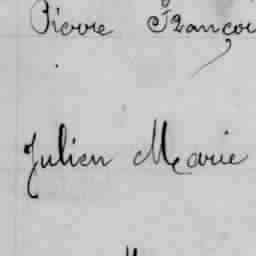 Pierre Françoi
Julien Marie